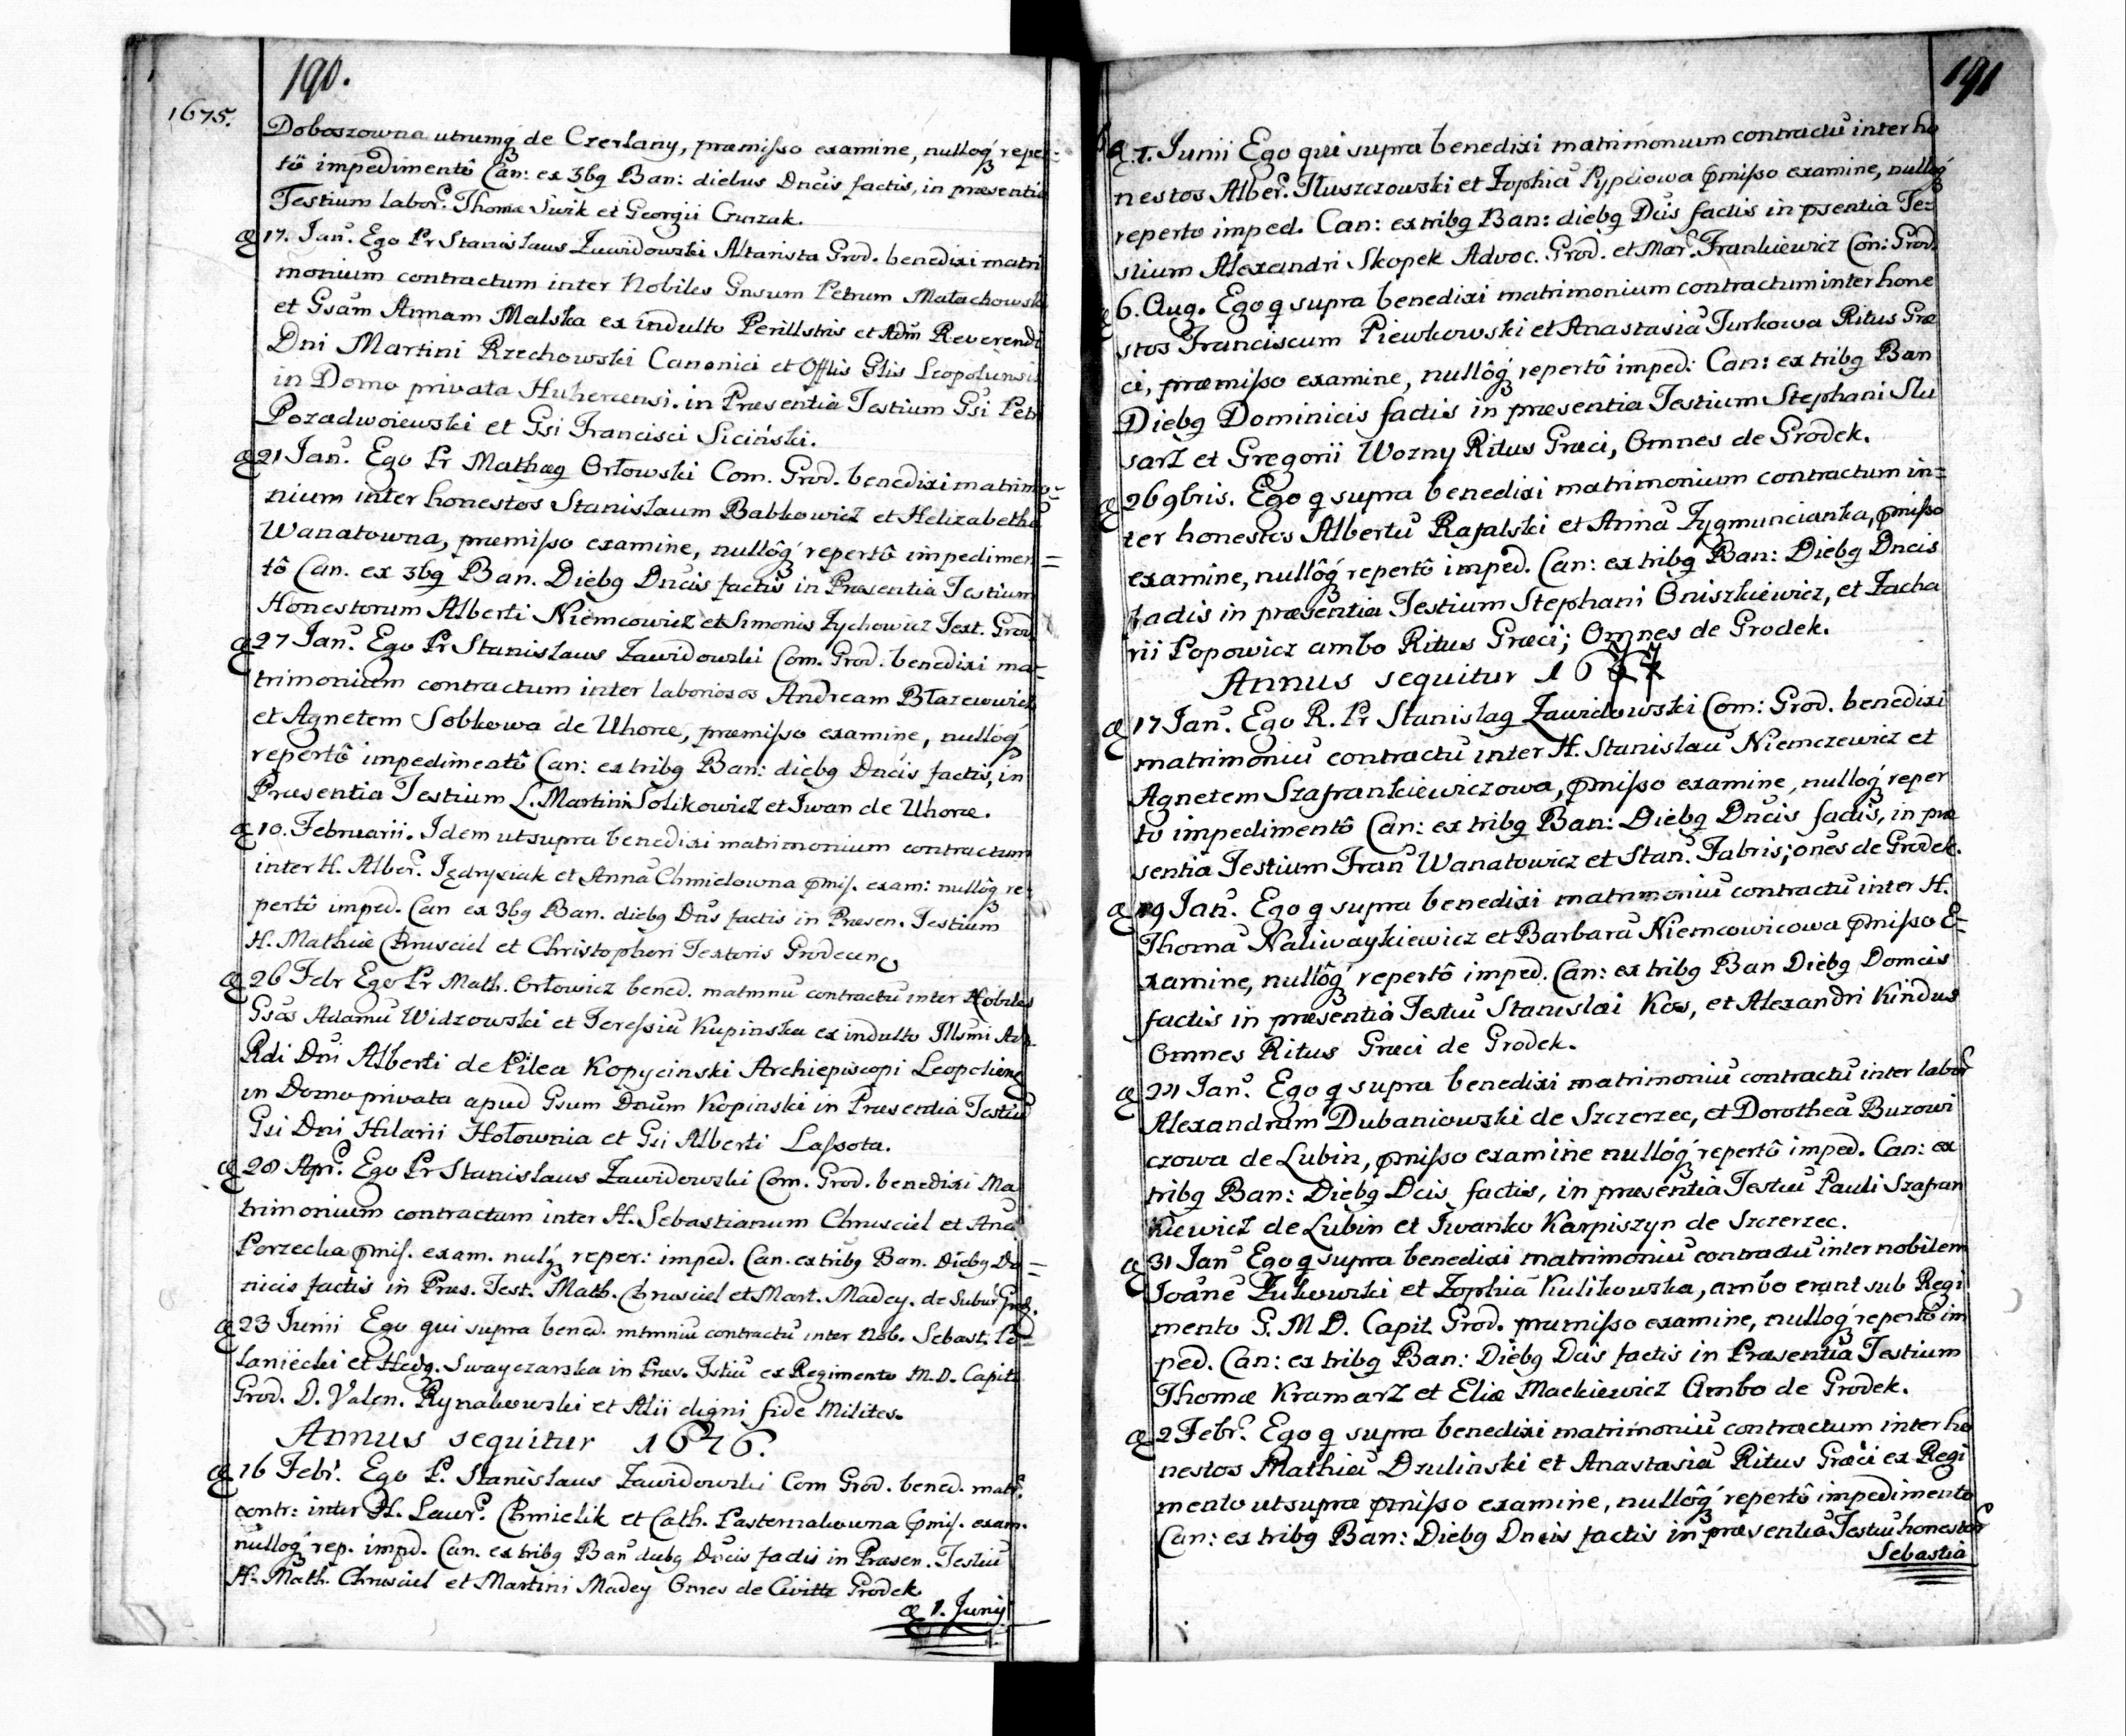 190.
1675.
Doboszowna utrumq de Czerlany, præmisso examine, nulloq reper=
tô impedimentô Can: ex 3bq Ban: diebus Dncis factis, in præsentia
Testium labor. Thomæ Suik et Georgii Gurzak.
17. Jan. Ego Pr Stanislaus Zawidowski Altarista Grod. benedixi matri
monium contractum inter Nobiles Gnsum Petrum Małachowski
et Gsam Annam Malska ex indulto Perillstris et Adm Reverendi
Dni Martini Rzechowski Canonici et Offlis Glis Leopoliensis
in Domo privata Huhercensi. in Præsentia Testium Gsi Petri
Pozadwoiewski et Gsi Francisci Siciński.
21 Jan. Ego Pr Mathæq Orłowski Com. Grod. benedixi matrimo=
nium inter honestos Stanislaum Babkowicz et Helizabetha
Wanatowna, præmisso examine, nullôq repertô impedimen=
tô Can. ex 3bq Ban. Diebq Dncis factis in Præsentia Testium
Honestorum Alberti Niemcowicz et Simonis Zychowicz Text. Grod
27 Jan. Ego Pr Stanislaus Zawidowski Com. Grod. benedixi ma=
trimonium contractum inter laboriosos Andream Błazewowicz
et Agnetem Sobkowa de Uhorce, præmisso examine, nulloq
repertô impedimentô Can: ex tribq Ban: diebq Dncis factis, in
Præsentia Testium L. Martini Solikowicz et Iwan de Uhorce.
10. Februarii. Idem ut supra benedixi matrimonium contractum
inter H. Alber. Jędrysiak et Annã Chmielowna pmis. exam: nullôq re=
pertô imped. Can ex 3bq Ban. diebq Dns factis in Præsen. Testium
H. Mathiæ Chrusciel et Christophori Textoris Grodecens
26 Febr Ego Pr Math. Orłowicz bened. matmnũ contractũ inter Nobiles
Gsos Adamũ Widzowski et Teressiã Kupinska ex indulto Illsmi Adm
Rdi Dni Alberti de Pilea Kopycinski Archiepiscopi Leopolienq
in Domo privata apud Gsum Dnum Kopinski in Præsentia Testiũ
Gsi Dni Hilarii Hołownia et Gsi Alberti Lassota.
28 Apr. Ego Pr Stanislaus Zawidowski Com. Grod. benedixi Ma
trimonium contractum inter H. Sebastianum Chrusciel et Anã
Porzecka pmis. exam. nulq reper: imped. Can. ex tribq Ban. Diebq Do=
nicis factis in Præs. Test. Math. Chrusciel et Mart. Madey. de Subur Grod.
23 Junii Ego qui supra bened. mtmniũ contractũ inter Nob. Sebast. Po=
laniecki et Hedq. Swayczarska in Præs. Tstiũ ex Regimento M. D. Capit.
Grod. D. Valen. Rynakowski et Alii digni fide Milites.
Annus sequitur 1676.
16 Febr. Ego P. Stanislaus Zawidowski Com Grod. bened. matr.
contr: inter H. Lawr. Chmielik et Cath. Pasternakowna pmis. exam.
nulloq rep. impd. Can. ex tribq Ban diebq Dncis factis in Præsen. Testiũ
H. Math. Chrusciel et Martini Madey Omes de Civitte Grodek
1. Junij
191
1. Junii Ego qui supra benedixi matrimonium contractũ inter ho
nestos Alber. Tłuszczowski et Zophiã Pypciowa pmisso examine, nulloq
reperto imped. Can: ex tribq Ban: diebq Dcis factis in psentia Te=
stium Alexandri Skopek Advoc. Grod. et Mar. Frankiewicz Con: Grod.
6. Aug. Ego q supra benedixi matrimonium contractum inter hone
stos Franciscum Piewkowski et Anastasiã Turkowa Ritus Græ
ci, præmisso examine, nullôq repertô imped: Can: ex tribq Ban
Diebq Dominicis factis in præsentia Testium Stephani Slu
sarz et Gregorii Wozny Ritus Græci, Omnes de Grodek.
26 9bris. Ego q supra benedixi matrimonium contractum in=
ter honestos Albertũ Rafalski et Annã Zygmuncianka, pmisso
examine, nullôq repertô imped. Can: ex tribq Ban: Diebq Dncis
factis in præsentia Testium Stephani Oniszkiewicz, et Zacha
rii Popowicz ambo Ritus Græci; Omnes de Grodek.
Annus sequitur 1677
17 Jan. Ego R. Pr Stanislaq Zawidowski Com: Grod. benedixi
matrimoniũ contractũ inter H. Stanislaũ Niemczewicz et
Agnetem Szafrankiewiczowa, pmisso examine, nulloq reper
to impedimentô Can: ex tribq Ban: Diebq Dncis factis, in præ
sentia Testium Fran Wanatowicz et Stan. Fabris; ones de Grodek.
19 Jan. Ego q supra benedixi matrimoniũ contractũ inter H.
Thomã Naliwaykiewicz et Barbarã Niemcowicowa pmisso E=
xamine, nullôq repertô imped. Can: ex tribq Ban Diebq Domcis
factis in præsentia Testiũ Stanislai Kos, et Alexandri Kindus
Omnes Ritus Græci de Grodek.
24 Jan. Ego q supra benedixi matrimoniũ contractũ inter labor
Alexandrum Dubaniowski de Szczerzec, et Dorotheã Buzowi
czowa de Lubin, pmisso examine nullôq repertô imped. Can: ex
tribq Ban: Diebq Dcis factis, in præsentia Testiũ Pauli Szafran
kiewicz de Lubin et Iwanko Karpiszyn de Szczerzec.
31 Jan Ego q supra benedixi matrimoniũ contractũ inter nobilem
Joãne Zukowski et Zophiã Kulikowska, ambo erant sub Regi
mento G. M D. Capit Grod. præmisso examine, nulloq repertô im
ped. Can: ex tribq Ban: Diebq Dcis factis in Præsentia Testium
Thomæ Kramarz et Eliæ Mackiewicz Ambo de Grodek.
2 Febr. Ego q supra benedixi matrimoniũ contractum inter ho
nestos Mathiã Dzulinski et Anastasiã Ritus Græci ex Regi
mento ut supra pmisso examine, nullôq repertô impedimento
Can: ex tribq Ban: Diebq Dncis factis in præsentia Testiũ honestor
Sebastia